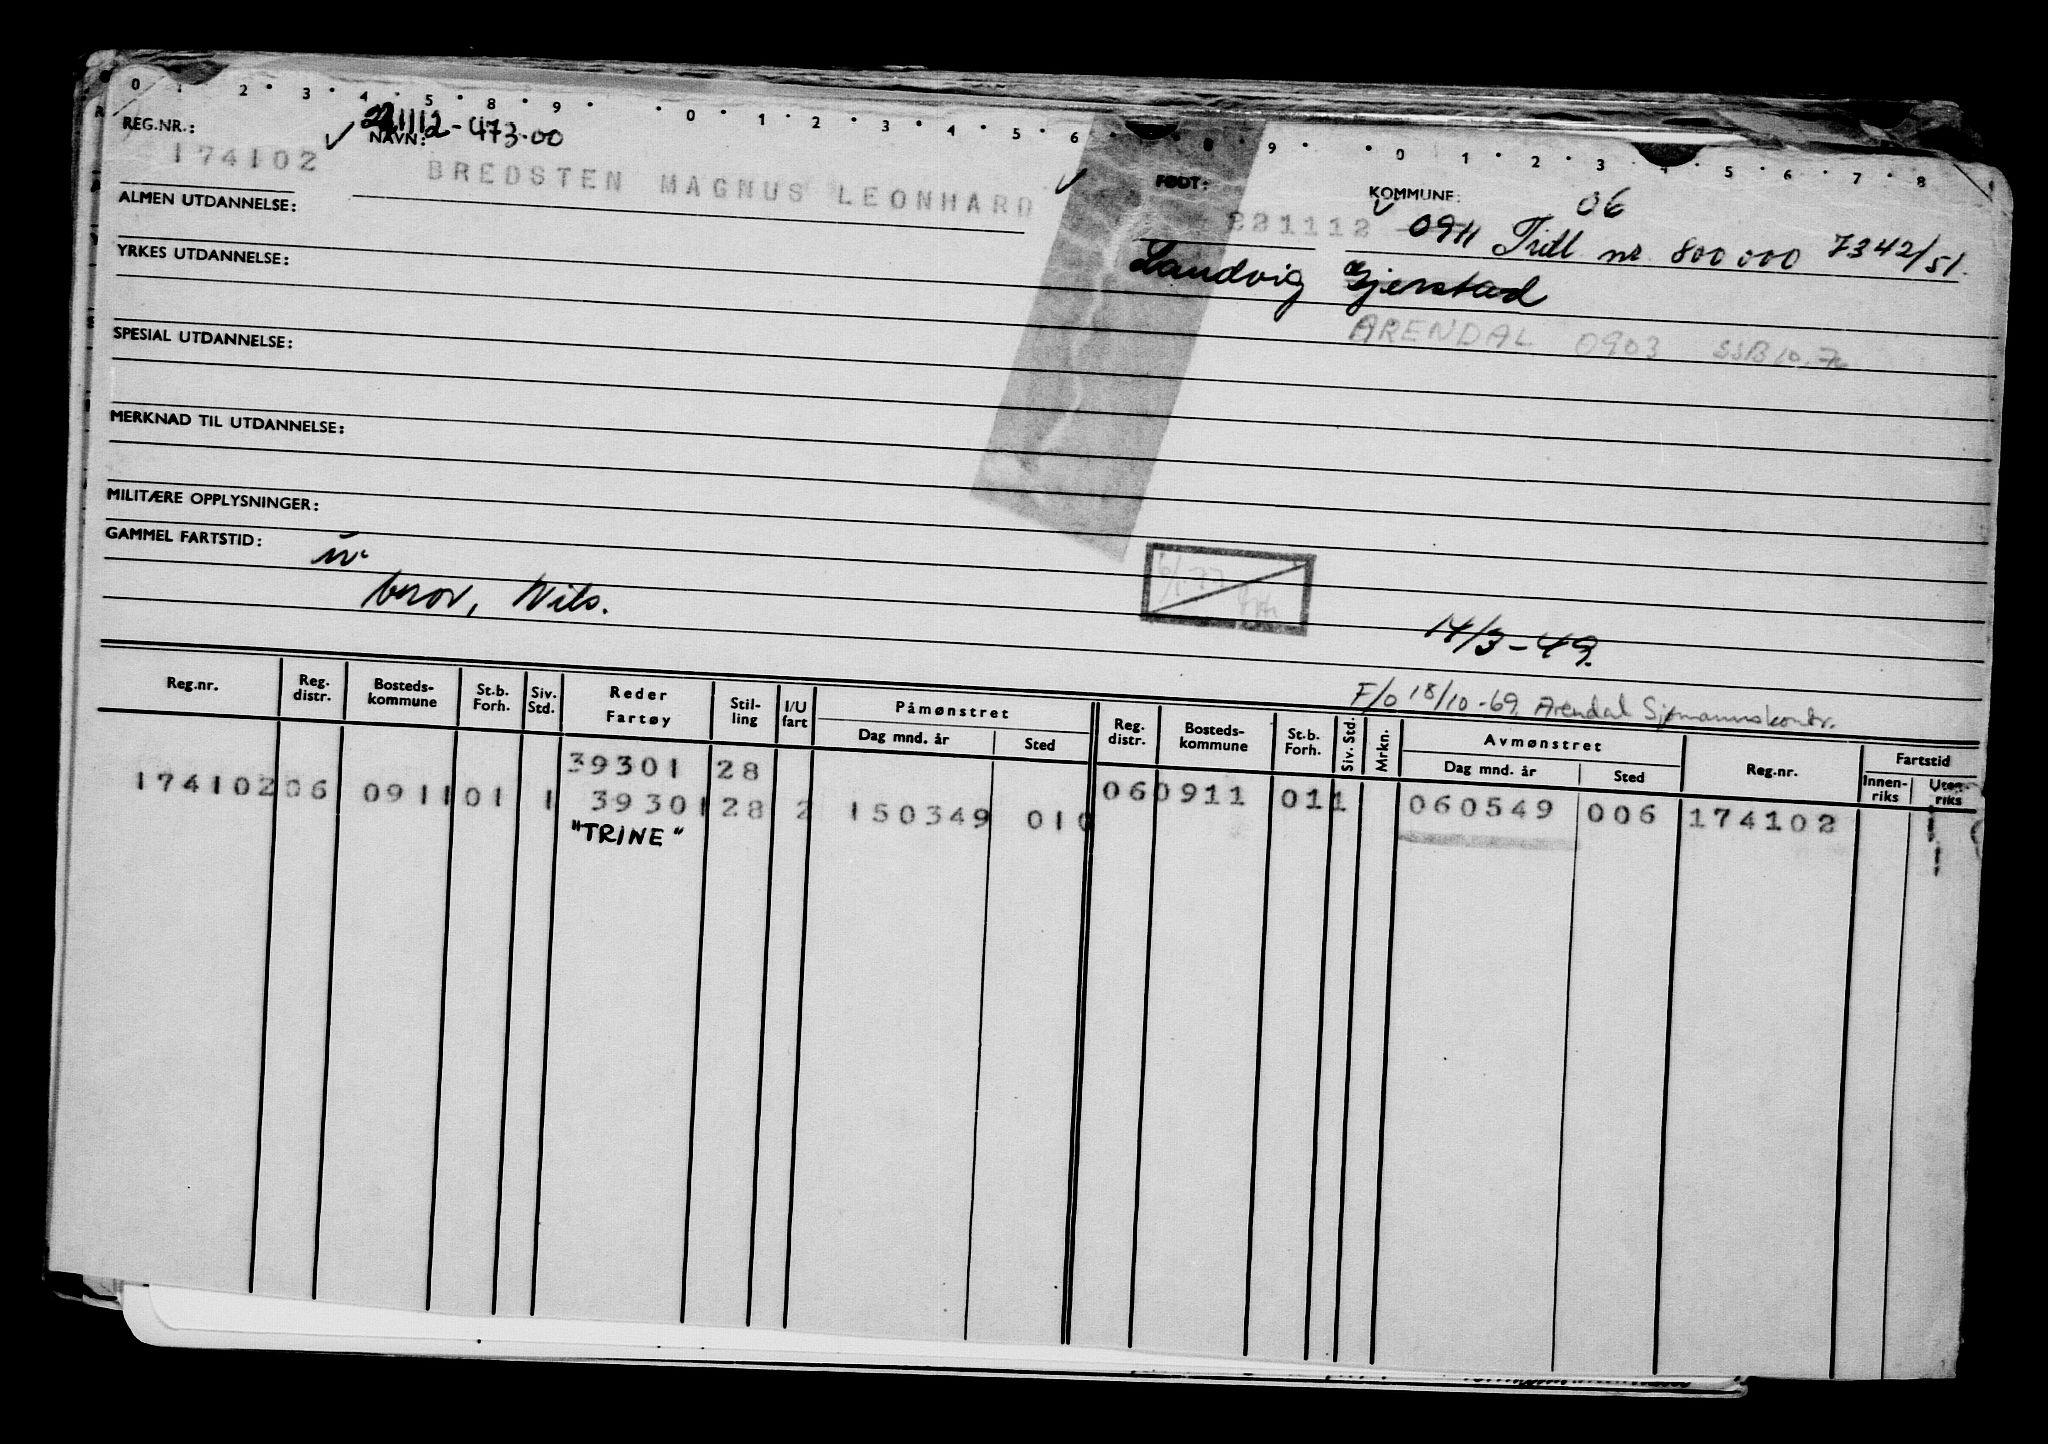 0 1 2 3 4 5 8 9 0 1 2 3 4 5 6 8 9 0 1 2 3 4 5 6 7 8
REG.NR.: 221112-473.00
NAVN:
174102 BREDSTEN MAGNUS LEONHARD
FØDT: KOMMUNE: 06
221112 0911 Tidl nr 800 000 7342/51.
ALMEN UTDANNELSE:
Landvig Gjerstad
YRKES UTDANNELSE:
ARENDAL 0903 SSB 10.
SPESIAL UTDANNELSE:
MERKNAD TIL UTDANNELSE:
MILITÆRE OPPLYSNINGER:
GAMMEL FARTSTID:
Nils.
14/3-49.
F/o 18/10-69. Arendal Sjømannskontr.
Reg.nr. Reg. distr. Bosteds-kommune St.b. Forh. Siv. Std. Reder Fartøy Stil-ling I/U fart Påmønstret Dag mnd. år Sted Reg. distr. Bosteds-kommune St.b. Forh. Siv. Std. Mrkn. Avmønstret Dag mnd. år Sted Reg.nr. Fartstid Innen-riks Uten-riks
39301 28
174102 06 0911 01 1 39301 28 2 150349 010 06 0911 01 1 060549 006 174102
"TRINE"